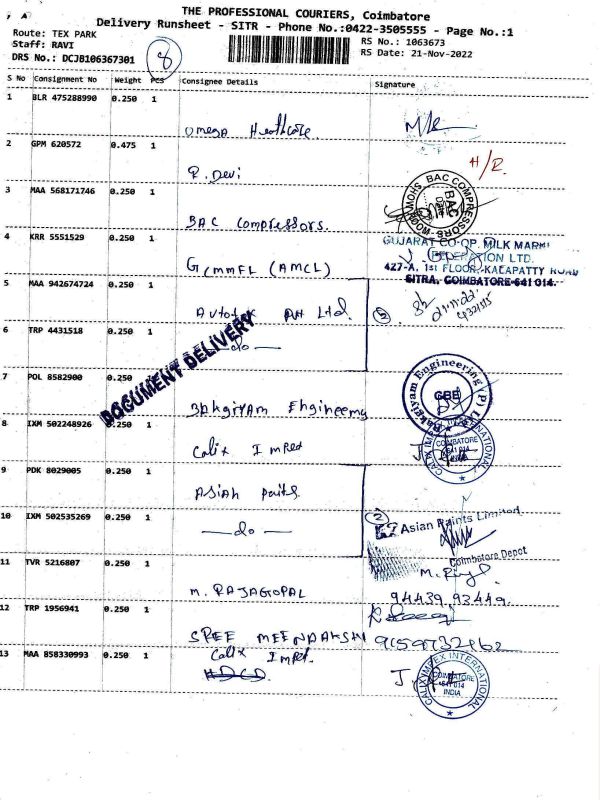 THE PROFESSIONAL COURIERS, Coimbatore
Delivery Runsheet - SITR - Phone No.:0422-3505555 - Page No.:1
Route: TEX PARK
Staff: RAVI
DRS No.: DCJB106367301
8
RS No.: 1063673
RS Date: 21-Nov-2022
S No Consignment No Weight PCS Consignee Details Signature
1 BLR 475288990 0.250 1
Omega Healthcare
2 GPM 620572 0.475 1
P. Devi
H/R.
3 MAA 568171746 0.250 1
BAC Compressors.
BAC COMPRESSORS
4 KRR 5551529 0.250 1
GCMMFL (AMCL)
GUJARAT CO-OP. MILK MARMI
ERATION LTD.
427-A, 1st FLOOR, KALAPATTY ROAD
SITRA, COIMBATORE-641 014.
5 MAA 942674724 0.250 1
Pvt Ltd.
2
6 TRP 4431518 0.250 1
—do—
DOCUMENT DELIVERY
7 POL 8582900 0.250 1
Bakgiyam Engineering
Bakgiyam Engineering (P) Ltd
GBE
8 IXM 502248926 0.250 1
Calix Impex
CALIXYIMPEX INTERNATIONAL
COIMBATORE
641 014
INDIA
9 PDK 8029005 0.250 1
Asian paints
10 IXM 502535269 0.250 1
—do—
2
Asian Paints Limited
Coimbatore Depot
11 TVR 5216807 0.250 1
M. RAJAGOPAL
94439 93449.
12 TRP 1956941 0.250 1
SREE MEENAAKSHI
9159732662
13 MAA 858330993 0.250 1
Calix Impex.
HDCD
CALIXYIMPEX INTERNATIONAL
COIMBATORE
641 014
INDIA